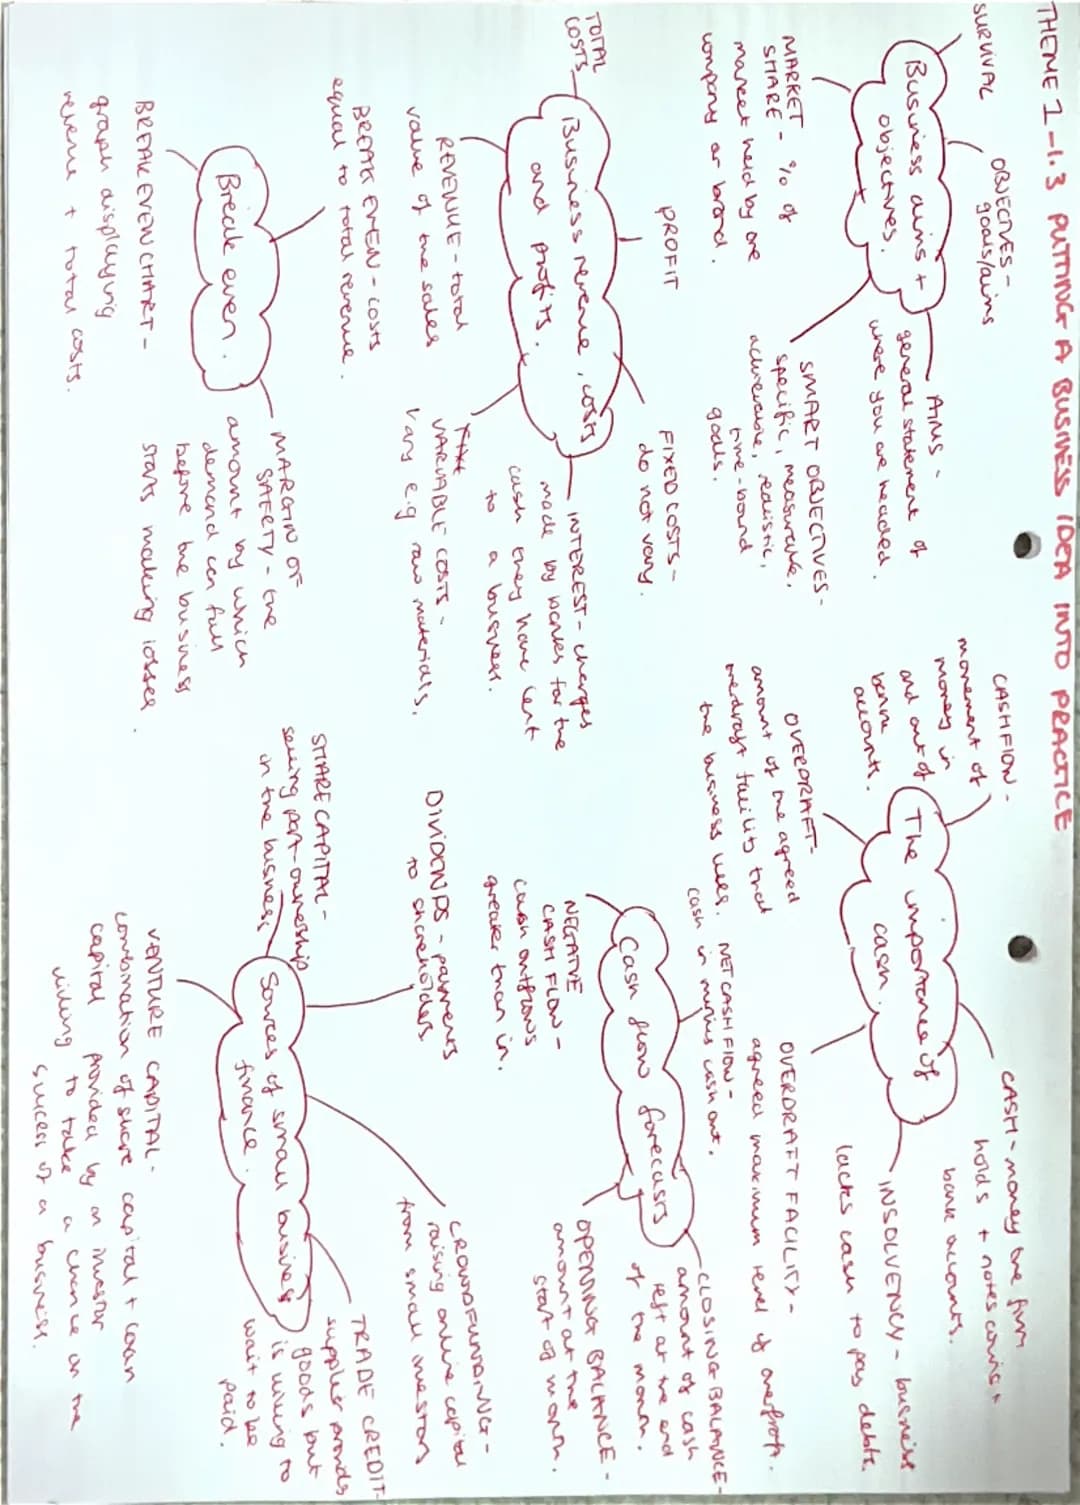 THEME 1-1.3 PUTTING A BUSINESS IDEA INTO PRACTICE
SURVIVAL
OBJECTIVES -
goals/aims
Business aims +
objectives.
AIMS -
general statement of
where you are headed.
MARKET
SHARE - % of
market held by one
company or brand.
SMART OBJECTIVES-
specific, measurable,
achievable, realistic,
time-bound
goals.
CASHFLOW -
movement of
money in
and out of
bank
accounts.
The importance of
cash.
CASH - money the firm
holds + notes coins +
bank accounts.
OVERDRAFT-
amount of the agreed
overdraft facility that
the business uses.
OVERDRAFT FACILITY-
agreed maximum level of
INSOLVENCY - business
lacks cash to pay debts.
TOTAL
COSTS
PROFIT
Business revenue, costs
and profits.
FIXED COSTS -
do not vary.
REVENUE - total
value of the sales
VARIABLE COSTS -
vary e.g raw materials.
INTEREST - charges
made by banks for the
cash they have lent
to a business.
NET CASH FLOW -
cash in minus cash out.
Cash flow forecasts
NEGATIVE
CASH FLOW -
cash outflows
greater than in.
CLOSING BALANCE-
amount of cash
left at the end
of the month.
OPENING BALANCE -
amount at the
start of month.
BREAK EVEN - costs
equal to total revenue.
Break even.
BREAK EVEN CHART -
graph displaying
revenue + total costs.
MARGIN OF
SAFETY - the
amount by which
demand can fall
before the business
starts making losses.
DIVIDENDS - payments
to shareholders
SHARE CAPITAL -
selling part-ownership
in the business
Sources of small business
finance.
CROWDFUNDING -
raising online capital
from small investors
TRADE CREDIT-
supplier provides
goods but
is willing to
wait to be
paid.
VENTURE CAPITAL-
combination of share capital + loan
capital provided by an investor
willing to take a chance on the
success of a business.